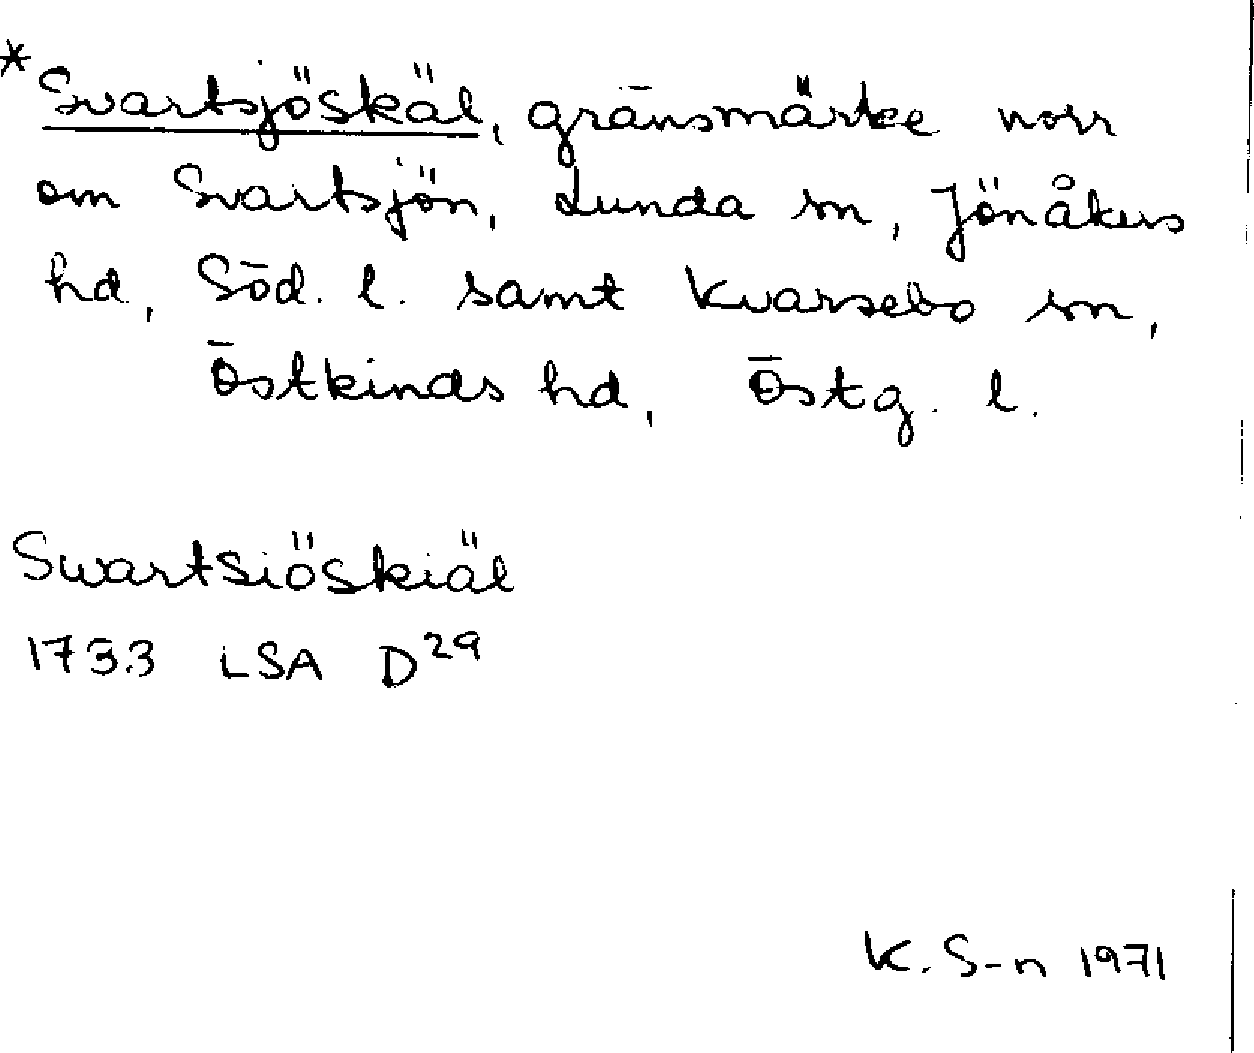 *Svartsjöskäl, gränsmärke norr
om Svartsjön, Lunda sn, Jönåkers
hd, Söd. l. samt Kvarsebo sn,
Östkinds hd, Östg. l.
Swartsiöskiäl
1733 LSA D29
K. S-n 1971